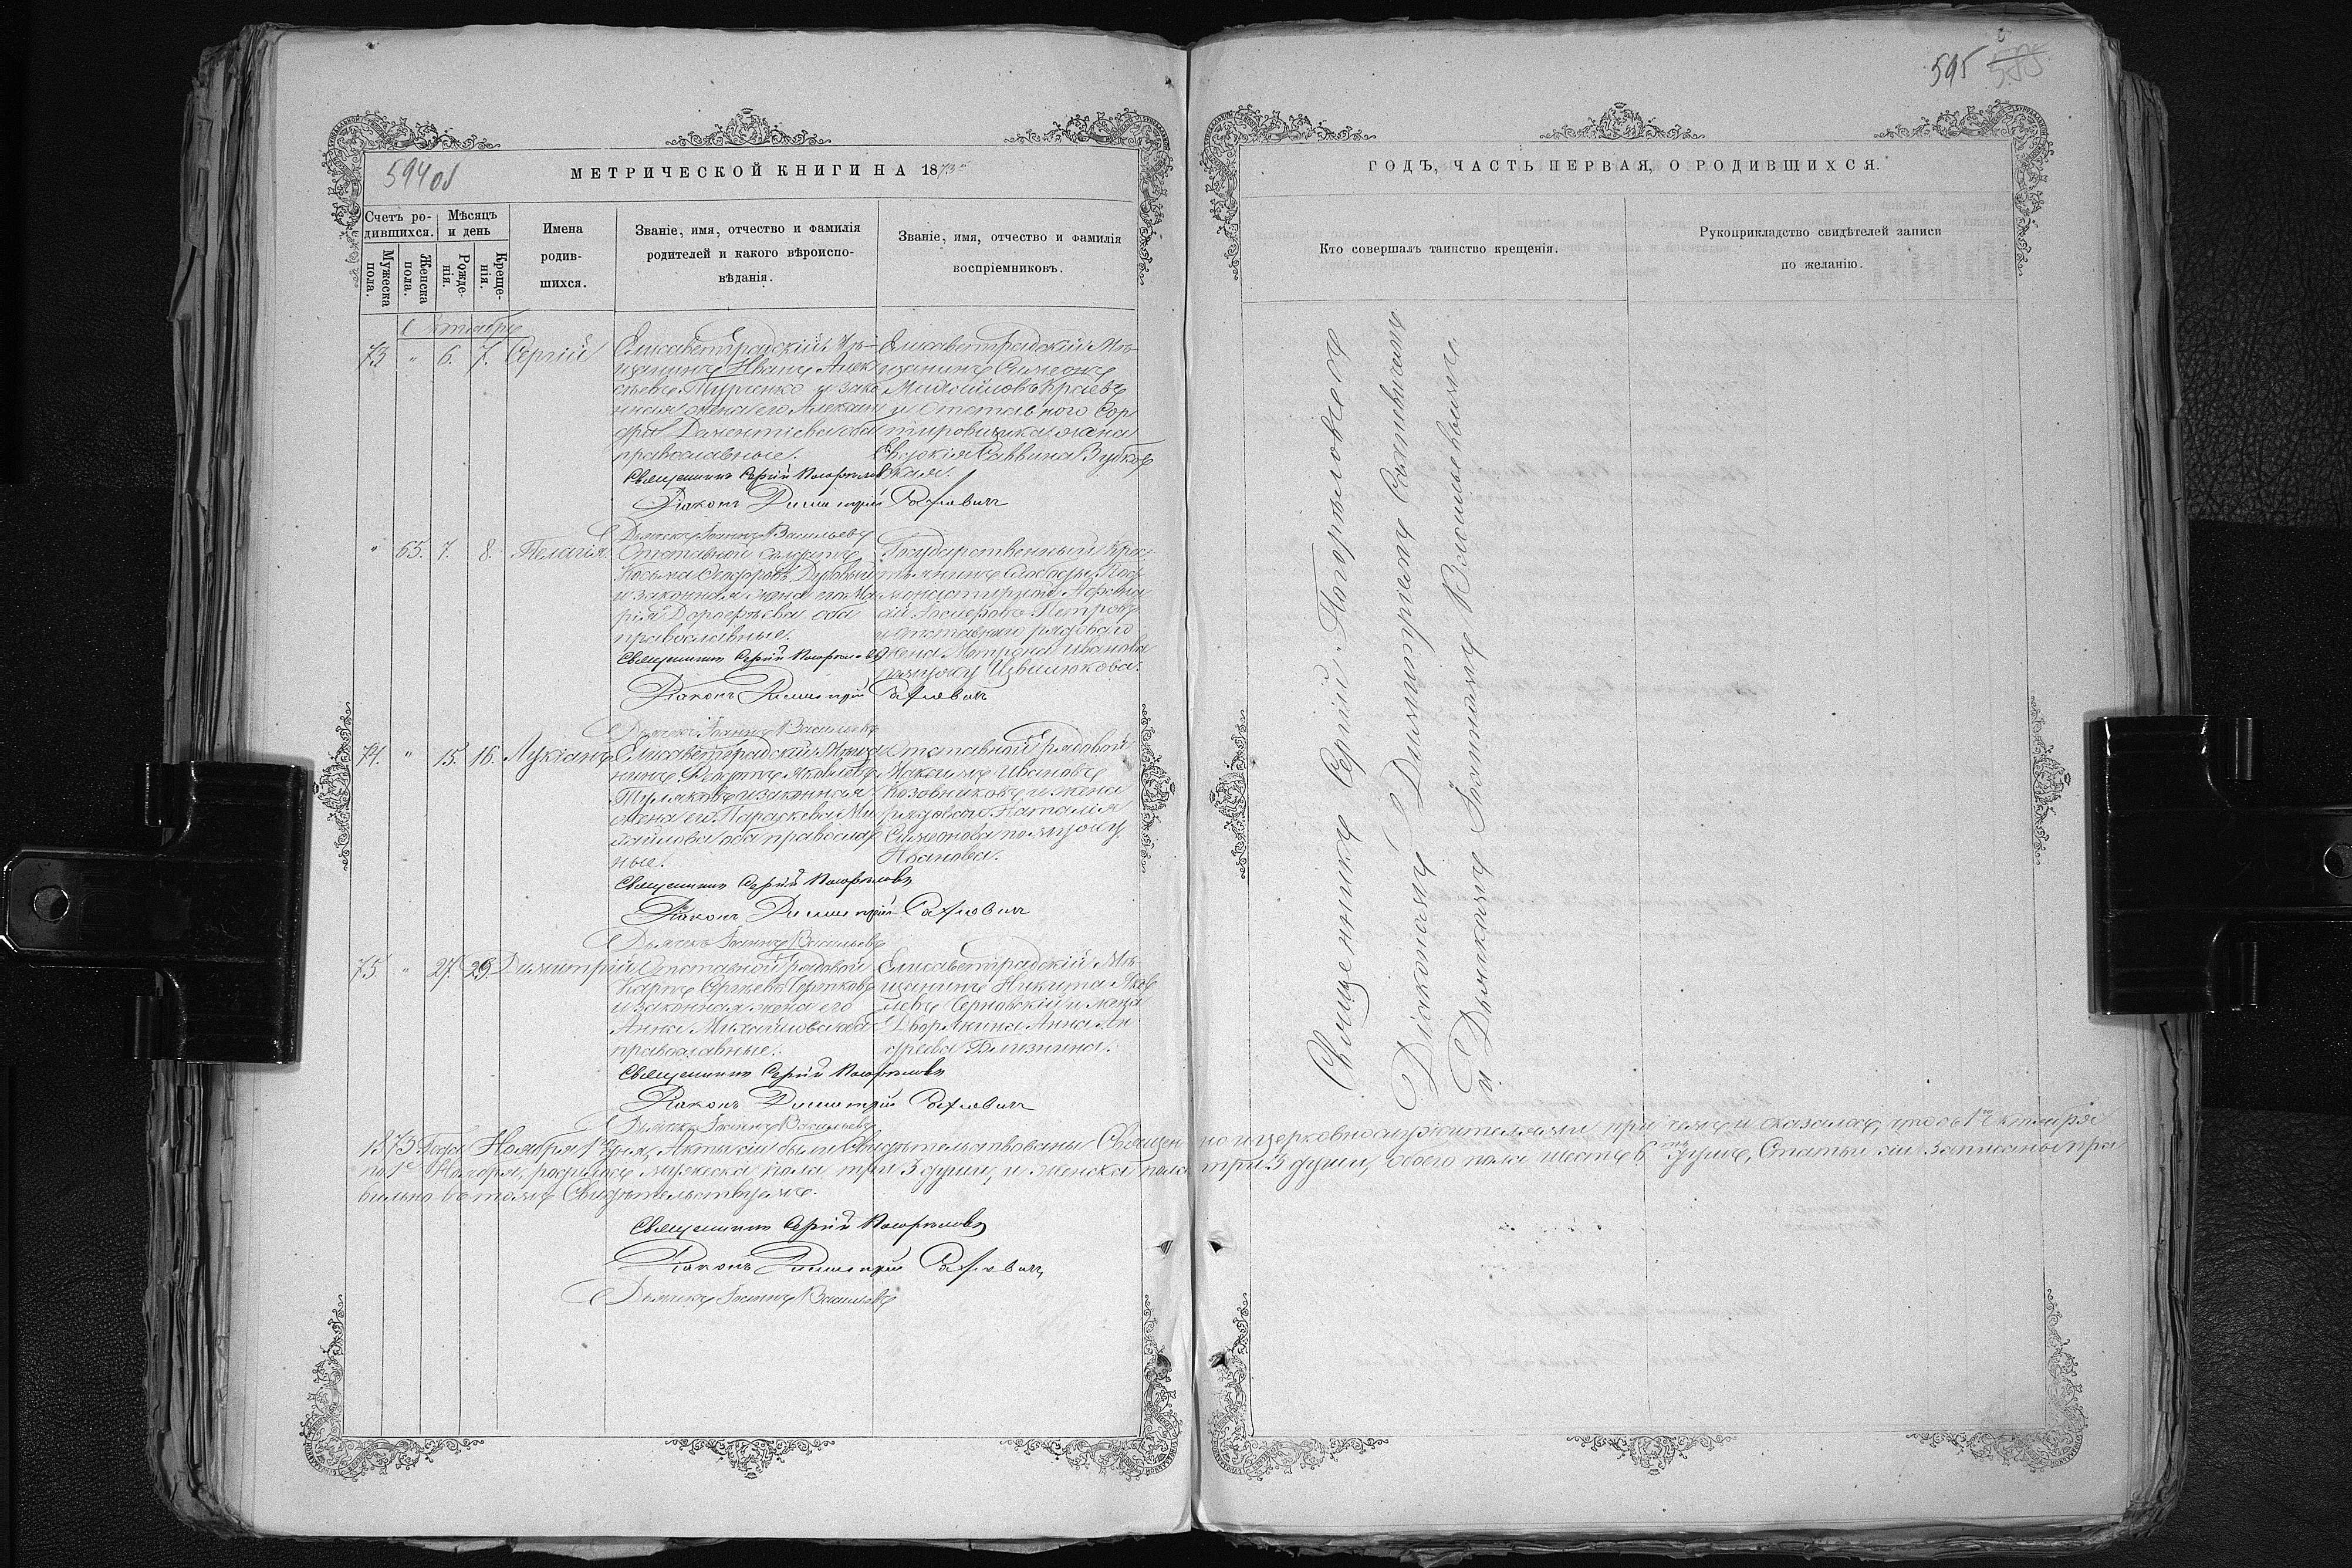 594об
МЕТРИЧЕСКОЙ КНИГИ НА 1873й
Счетъ ро-
дившихся.
Мужеска
пола.
Женска
пола.
Мѣсяцъ
и день
Рожде-
нія.
Креще-
нія.
Имена
родив-
шихся.
Званіе, имя, отчество и фамилія
родителей и какого вѣроиспо-
вѣданія.
Званіе, имя, отчество и фамилія
воспріемниковъ.
Октябрь
73 " 6. 7. Сергій
Елисаветградскій Мѣ-
щанинъ Иванъ Алек
сѣевъ и зако
нная жена его Алексан
дра оба
православные.
Священникъ Сергій Погорѣловъ
Діаконъ Димитрій
Дьячекъ Іоаннъ Васильевъ
Елисаветградскій Мѣ-
щанинъ Симеонъ
Михайловъ Краевъ
и Отставного
жена
Евдокія Саввина
" 65. 7. 8. Пелагія
Отставной солдатъ
Косьма Феодоровъ Дубовый
и законная жена его Ма
рія Дорофѣева оба
православные.
Священникъ Сергій Погорѣловъ
Діаконъ Димитрій
Дьячекъ Іоаннъ Васильевъ
Государственный Крес
тьянинъ Слободы
Петровъ
и Отставного рядового
жена Матрона Иванова
по мужу
74. " 15. 16. Лукіанъ
Елисаветградскій Мѣща
нинъ Яковлевъ
Туляковъ и законная
жена его Параскева Ми
хайлова оба православ
ные.
Священникъ Сергій Погорѣловъ
Діаконъ Димитрій
Дьячекъ Іоаннъ Васильевъ
Отставной рядовой
Максимъ Ивановъ
и жена
рядового Наталія
Симеонова по мужу
Иванова.
75. " 27. 29. Димитрій
Отставной рядовой
Карпъ Сергѣевъ
и законная жена его
Анна Михайлова оба
православные.
Священникъ Сергій Погорѣловъ
Діаконъ Димитрій
Дьячекъ Іоаннъ Васильевъ
Елисаветградскій Мѣ-
щанинъ Никита Яков
левъ и жена
Дворянина Анна Ан
дреева Близнина.
1873 Года Ноября 1го дня, Акты сіи были Свидѣтельствованы Священно и церковнослужителями при чемъ и оказалось, что съ 1го Октября
по 1е Ноября, родилось мужеска пола три 3 души, и женска пола три 3 души, обоего пола шесть 6ть душъ, Статьи сіи Записаны пра
вильно въ томъ Свидѣтельствуемъ.
Священникъ Сергій Погорѣловъ
Діаконъ Димитрій
Дьячекъ Іоаннъ Васильевъ
595
ГОДЪ, ЧАСТЬ ПЕРВАЯ, О РОДИВШИХСЯ.
Кто совершалъ таинство крещенія.
Рукоприкладство свидѣтелей записи
по желанію.
Священникъ Сергій Погорѣловъ съ
Діакономъ Димитріемъ
и Дьячкомъ Іоанномъ Васильевымъ.